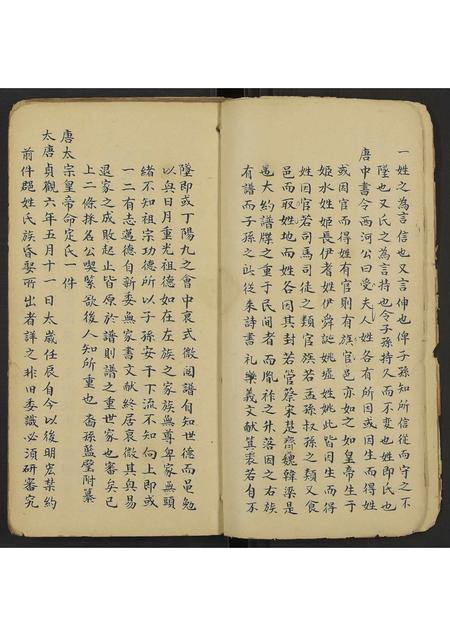 一姓之為言信也又言伸也俾子孫知所信從而守之不
墜也又氏之為言持也令子孫持久而不变也姓即氏也
唐中書令西河公曰受夫人姓各有所因或因生而得姓
或因官而得姓有官則有族官邑亦如之如皇帝生于
姬水姓姬長伊者姓伊舜誕姚墟姓姚此皆因生而得
姓因官若司馬司徒之類官族若孟孫叔孫之類又食
邑而取姓地而姓各因其封若管蔡宋楚齊魏韓梁是
邑大約譜牒之重于民間者而胤祚之升落因之右族
有譜而子孫之所從来詩書礼樂義文献箕裘若自不
墜即或丁陽九之會中衷式微閱谱自知世德而黾勉
以與日月重光祖德如在左族之家族無尊卑家無頭
緒不知祖宗功德所以子孫安于下流不知向上即或
一二有志邁德自新委無家書文献終居衰微其興易
退家之成败起止皆原於譜則譜之重世家也審矣已
上二條採名公喫緊欲後人知所重也 裔孫藍瑩附纂
唐太宗皇帝命定氏一件
太唐貞觀六年五月十一日太歲任辰自今以後明宏禁約
前件郡姓氏族昏娶所出者詳之非旧委識必須研審究